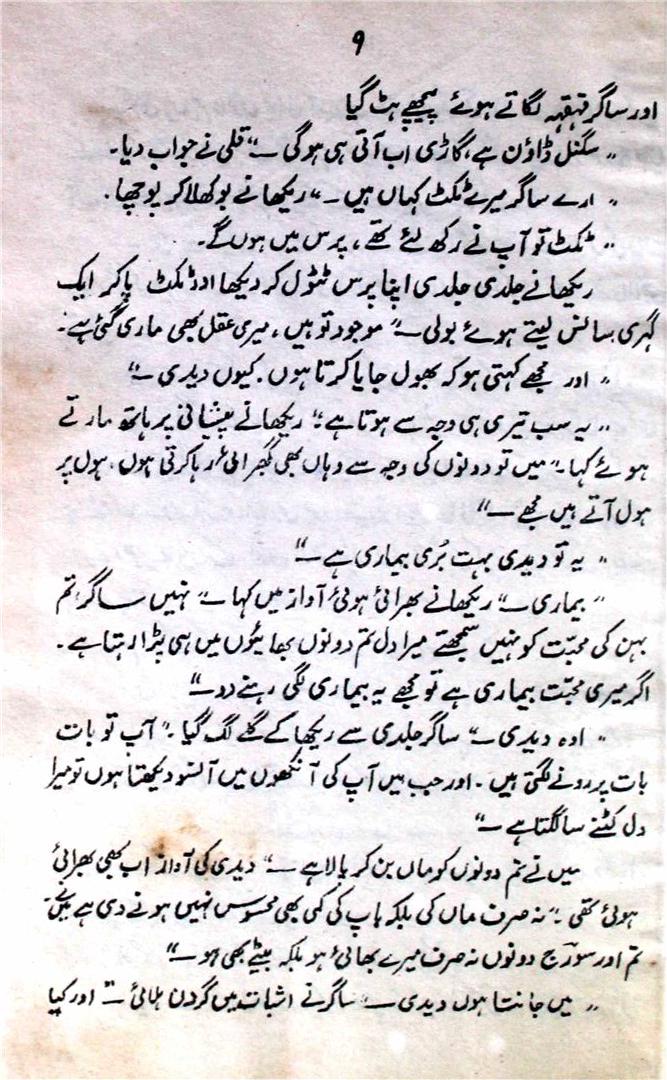 ۹
اور ساگر قہقہہ لگاتے ہوئے پیچھے ہٹ گیا
”سگنل ڈاؤن ہے، گاڑی اب آتی ہی ہوگی ۔“ قلی نے جواب دیا۔
”ارے ساگر میرے ٹکٹ کہاں ہیں ۔“ ریکھا نے بوکھلا کر پوچھا۔
”ٹکٹ تو آپ نے رکھ لئے تھے، پرس میں ہوں گے۔
ریکھا نے جلدی جلدی اپنا پرس ٹٹول کر دیکھا اور ٹکٹ پا کر ایک
گہری سانس لیتے ہوئے بولی ۔“ موجود تو ہیں، میری عقل بھی ماری گئی ہے۔
”اور مجھے کہتی ہو کہ بھول جایا کرتا ہوں۔ کیوں دیدی ۔“
”یہ سب تیری ہی وجہ سے ہوتا ہے؛“ ریکھا نے پیشانی پر ہاتھ مارتے
ہوئے کہا ۔“ میں تو دونوں کی وجہ سے وہاں بھی گھبرائی رہا کرتی ہوں۔ ہول پر
ہول آتے ہیں مجھے ۔“
”یہ تو دیدی بہت بُری بیماری ہے ۔“
”بیماری ۔“ ریکھا نے بھرائی ہوئی آواز میں کہا ۔“ نہیں ساگر تم
بہن کی محبّت کو نہیں سمجھتے میرا دل تم دونوں بھائیوں میں ہی پڑا رہتا ہے۔
اگر میری محبّت بیماری ہے تو مجھے یہ بیماری لگی رہنے دو ۔“
”اوہ دیدی ۔“ ساگر جلدی سے ریکھا کے گلے لگ گیا ۔“ آپ تو بات
بات پر رونے لگتی ہیں ۔ اور جب میں آپ کی آنکھوں میں آنسو دیکھتا ہوں تو میرا
دل کٹنے سا لگتا ہے ۔“
میں نے تم دونوں کو ماں بن کر پالا ہے ۔“ دیدی کی آواز اب بھی بھرائی
ہوئی تھی ۔“ نہ صرف ماں کی بلکہ باپ کی کمی بھی محسوس نہیں ہونے دی ہے میں نے۔
تم اور سورج دونوں نہ صرف میرے بھائی ہو بلکہ بیٹے بھی ہو ۔“
”میں جانتا ہوں دیدی ۔“ ساگر نے اثبات میں گردن ہلائی ۔“ اور کیا